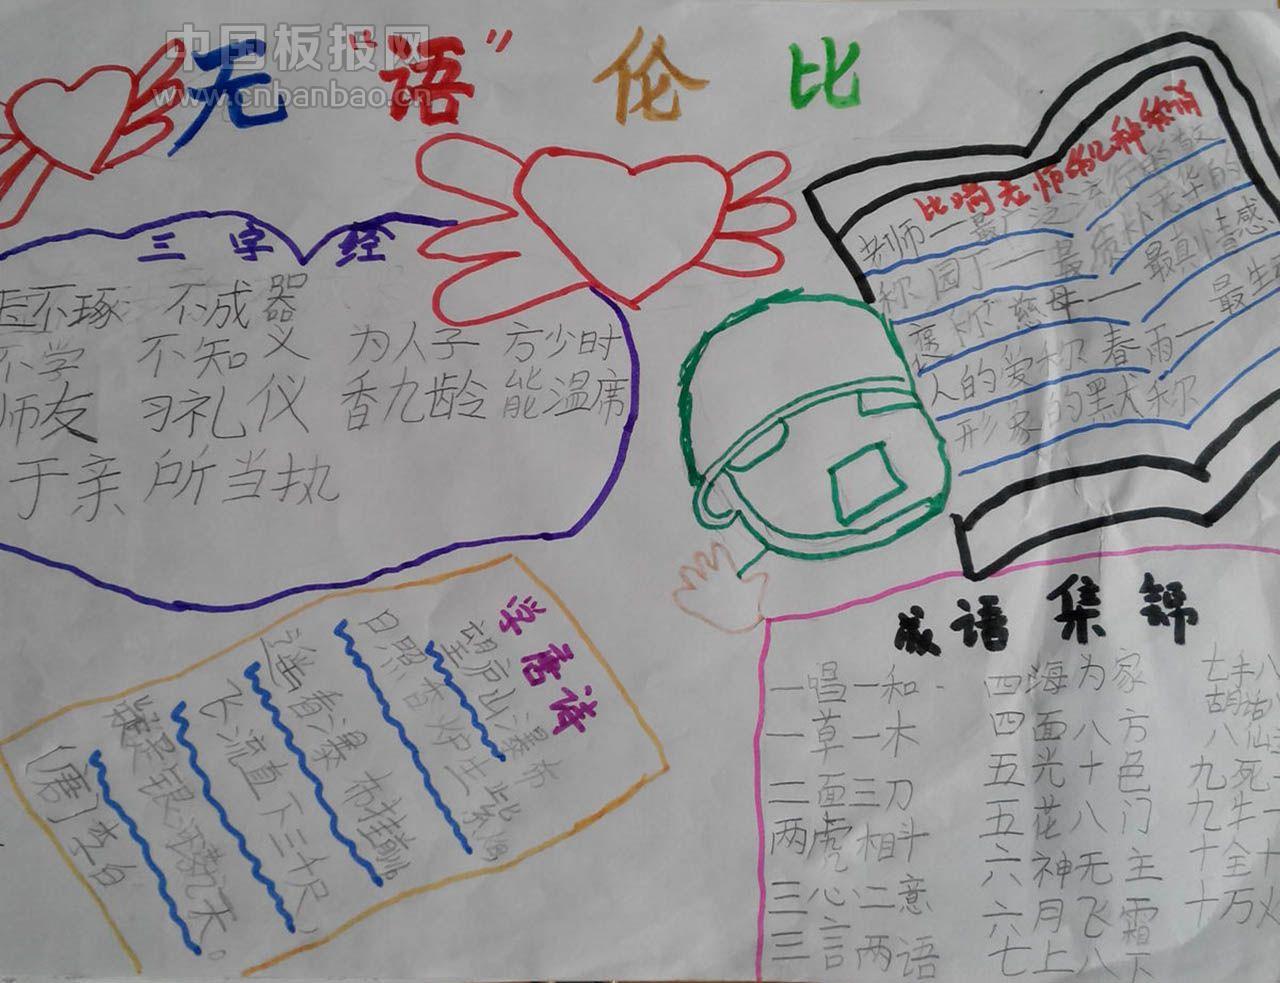 中国板报网
www.cnbanbao.cn
无“语”伦比
三字经
不琢 不成器
不学 不知义 为人子 方少时
师友 习礼仪 香九龄 能温席
于亲 所当执
比喻老师的几种称谓
老师一最广泛流行的敬
称 园丁一一最质朴无华的
称 慈母一一最真情感
人的爱称 春雨一最生
形象的默称
学唐诗
望庐山瀑布
日照香炉生紫烟
遥看瀑布挂前
飞流直下三千尺,
疑是银河 天。
(唐)李白
成语集锦
一唱一和 四海为家 七手八
一草一木 四面八方 胡说
二面三刀 五光十色 八仙
两虎相斗 五花八门 九死
三心二意 六神无主 九牛一
三言两语 六月飞霜 十全十
七上八下 十万火